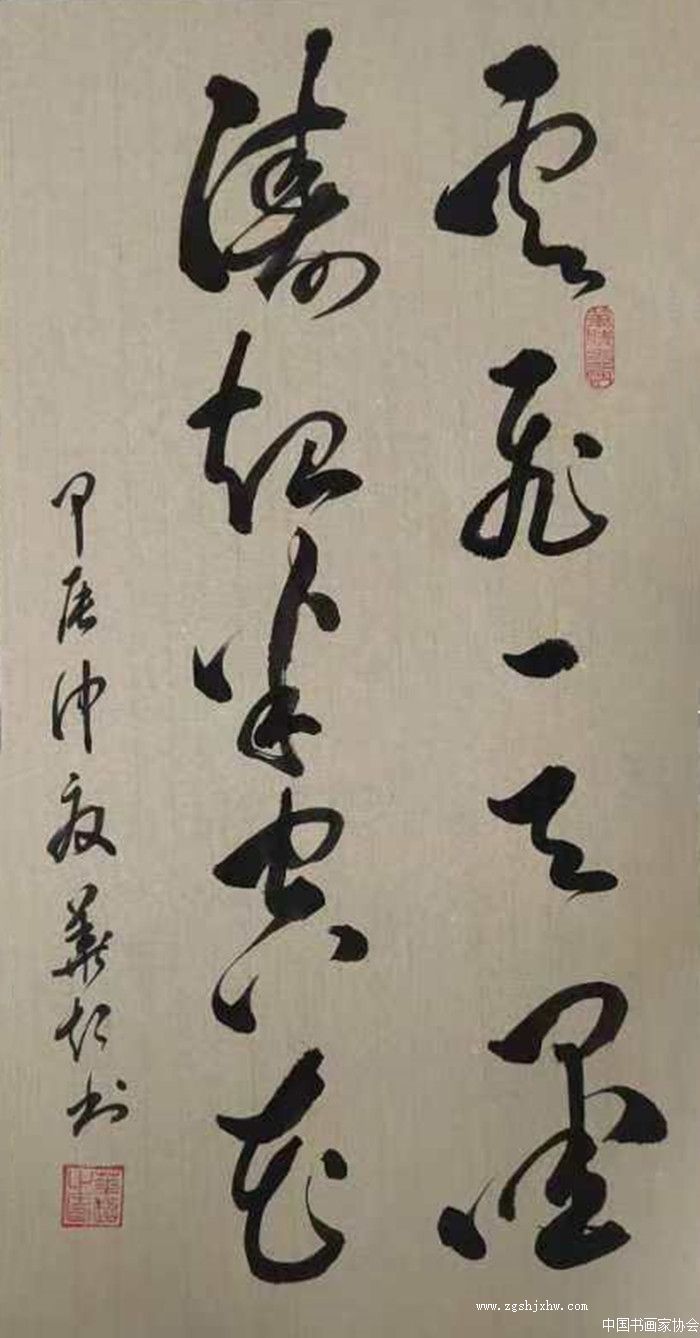 雲飛一天墨
濤起半空花
甲辰仲夏華书
www.zgshjxhw.com
中国书画家协会